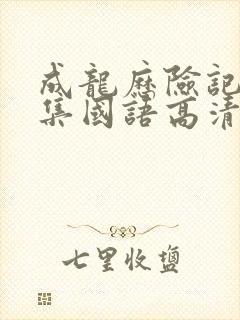 成龍歷險記
集國語高清
七里收鹽